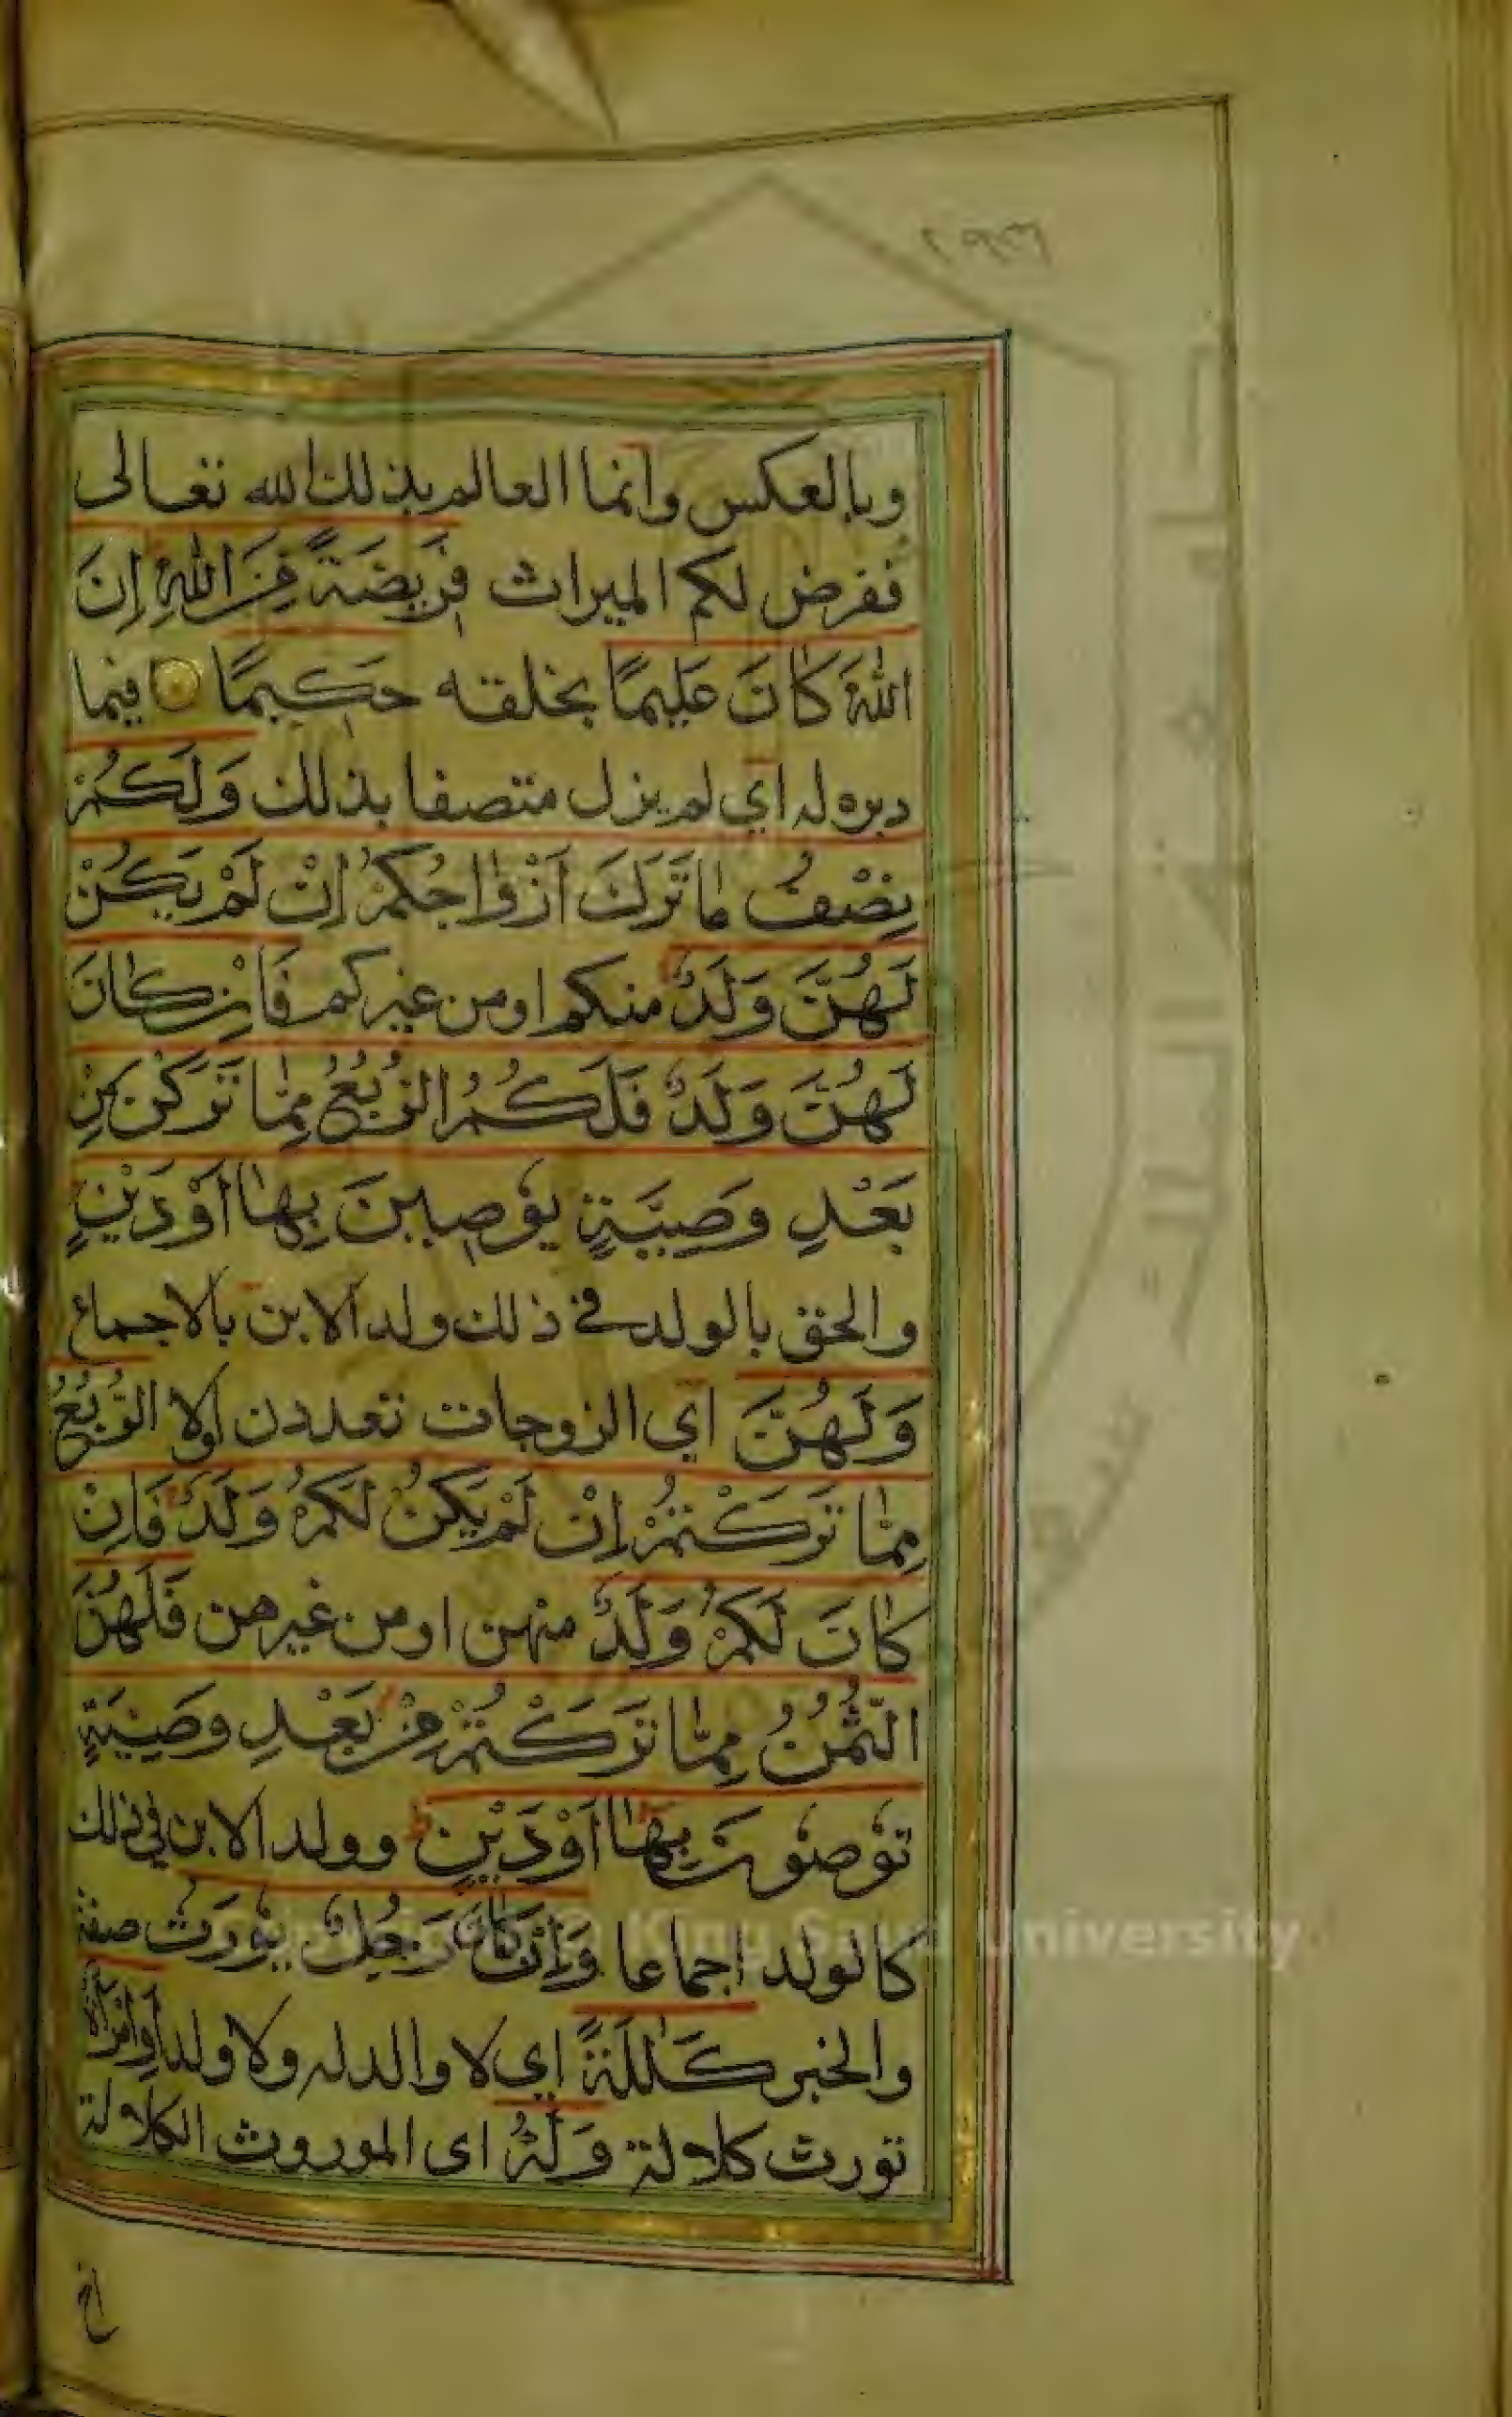 وبالعكس وانما العالم بذلك الله تعالى
ففرض لكم الميراث فَرِيضَةً مِنَ اللّٰهِ اِنَ
اللّٰهَ كَانَ عَلِيمًا بخلقه حَكِيمًا فيما
دبره له اي لم يزل متصفا بذلك وَلَكُمْ
نِصْفُ مَا تَرَكَ اَزْوَاجُكُمْ اِنْ لَمْ يَكُنْ
لَهُنَّ وَلَدٌ منكم او من غيركم فَاِنْ كَانَ
لَهُنَّ وَلَدٌ فَلَكُمُ الرُّبُعُ مِمَّا تَرَكْنَ مِنْ
بَعْدِ وَصِيَّةٍ يُوصِينَ بِهَا اَوْ دَيْنٍ
والحق بالولد في ذلك ولد الابن بالاجماع
وَلَهُنَّ اي الزوجات تعددن اولا الرُّبُعُ
مِمَّا تَرَكْتُمْ اِنْ لَمْ يَكُنْ لَكُمْ وَلَدٌ فَاِنْ
كَانَ لَكُمْ وَلَدٌ منهن او من غيرهن فَلَهُنَّ
الثُّمُنُ مِمَّا تَرَكْتُمْ مِنْ بَعْدِ وَصِيَّةٍ
تُوصُونَ بِهَا اَوْ دَيْنٍ وولد الابن في ذلك
كالولد اجماعا وَاِنْ كَانَ رَجُلٌ يُورَثُ صفة
والخبر كَلَالَةً اي لا والد له ولا ولد اَوِ امْرَاَةٌ
تورث كلالة وَلَهُ اى الموروث الكلالة
اخ
Copyright © King Saud University
جامعة الملك سعود